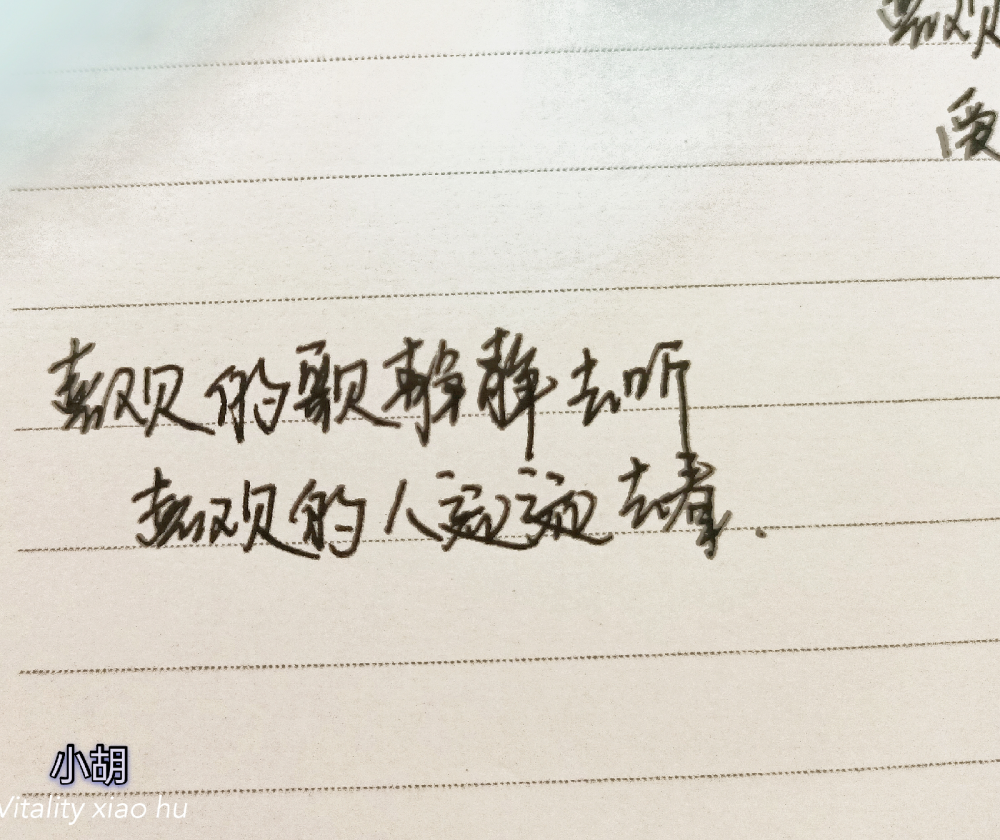 喜欢
爱
喜欢的歌静静去听
喜欢的人远远去看.
小胡
Vitality xiao hu